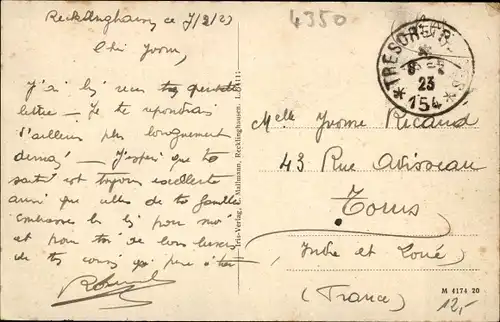 Recklinghausen ce 7/2/23
4350
Chère Yvonne,
J'ai bien reçu ta
lettre — Je te répondrai
d'ailleurs plus longuement
demain — J'espère que ta
santé est toujours excellente
ainsi que celles de ta famille
Embrasse les bien pour moi
et pour toi de bons baisers
de ton cousin qui pense à toi
TRESOR ET
8-2
23
* 154 *
Iris-Verlag,
Recklinghausen.
Melle Yvonne Ricaud
43 Rue Avisseau
Tours
Indre et Loire
(France)
M 4174 20
12,-